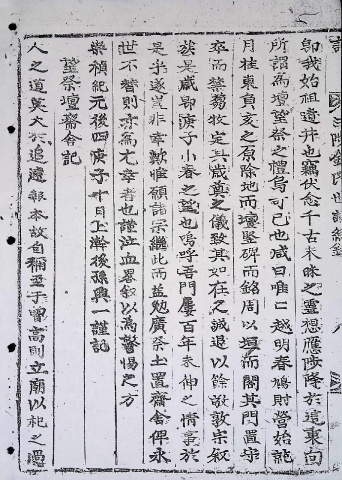 卽我始祖遺丼也竊伏念千古未昧之靈想應陟降於這東向
所謂爲壇望祭之禮烏可已也咸曰唯唯越明春鳩財營始龍
月桂東負亥之原除地而壇竪碑而銘周以垣而閣其門置守
卒而禁芻牧定其歲奠之儀致其如在之誠退以餘敬敦宗叙
族是歲卽庚子小春之望也嗚呼吾門屢百年未伸之情事於
是乎遂豈非幸歟惟願諸宗繼此而益勉廣祭土置齋舍俾永
世不替則亦爲尤幸者也謹泣血畧叙以爲警惕之方
崇禎紀元後四庚子十月上澣後孫興一謹記
望祭壇齋舍記
人之道莫大於追遠報本故自稱至于曾高則立廟以祀之遞